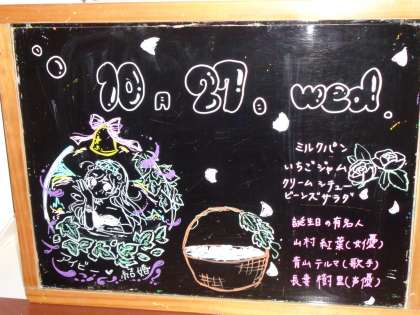 10月 27日 wed.
ミルクパン
いちごジャム
クリームシチュー
ビーンズサラダ
誕生日の有名人
山村紅葉(女優)
青山テルマ(歌手)
長妻樹里(声優)
アイビー♥結婚